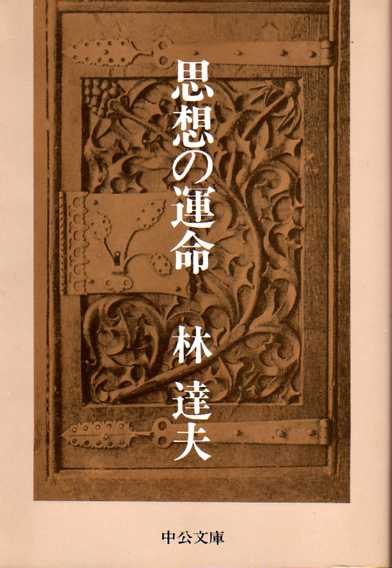 思想の運命
林達夫
中公文庫